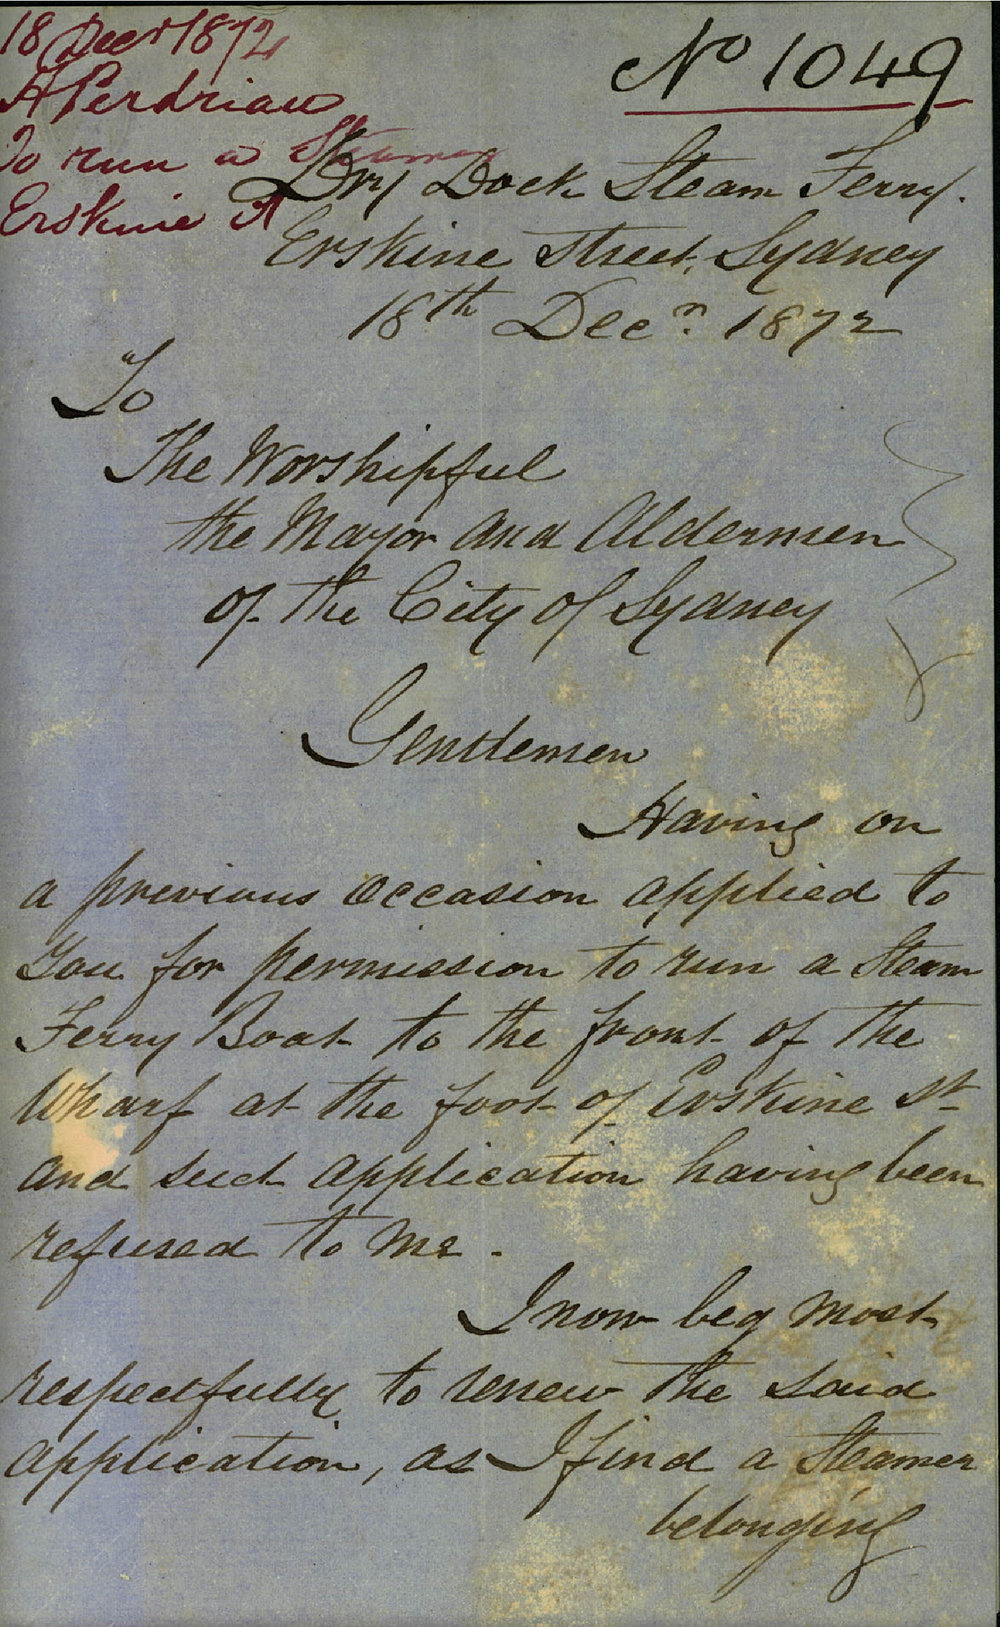 18 Decr 1872
H Perdriau
To run a Steamer
Erskine St
No 1049
Dry Dock Steam Ferry.
Erskine Street, Sydney
18th Decr. 1872
To
The Worshipful
the Mayor and Aldermen
of the City of Sydney
Gentlemen
Having on
a previous occasion applied to
you for permission to run a Steam
Ferry Boat to the front of the
Wharf at the foot of Erskine St
and such application having been
refused to me.
I now beg most
respectfully to renew the said
application, as I find a Steamer
belonging